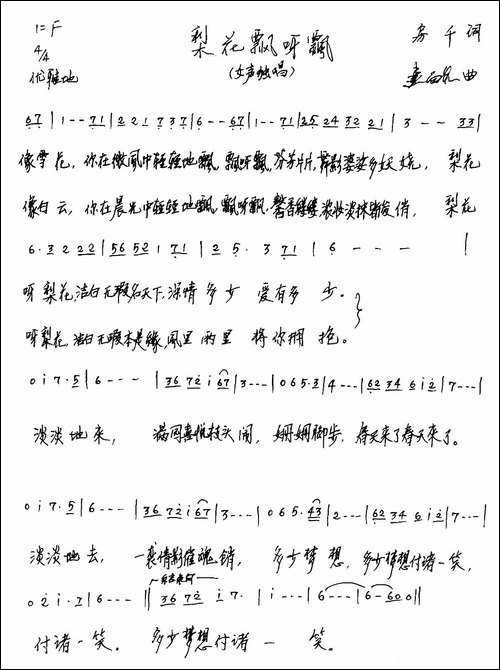 1=F
4/4
优雅地
梨花飘呀飘
(女声独唱)
务千词
曲
67 | 1--71 | 221 737 | 6--67 | 1--71 | 25 24 32 21 | 3--33 |
像雪花，你在微风中轻轻地飘，飘呀飘，芬芳片片，舞影婆娑多妖娆， 梨花
像白云，你在晨光中轻轻地飘，飘呀飘，馨香缕缕，浓妆淡抹 俏， 梨花
6·3 2 22 | 56 52 1 71 | 2 5· 3 71 | 6 - - - |
呀梨花，洁白无瑕名天下，深情多少 爱有多少。
呀梨花，洁白无瑕本是缘，风里雨里 将你拥抱。
0 i 7·5 | 6--- | 36 72 i 67 | 3--- | 0 6 5·3 | 4--- | 62 34 6 i 2 | 7--- |
淡淡地来， 满园 枝头闹， 姗姗脚步，春天来了春天来了。
0 i 7·5 | 6--- | 36 72 i 67 | 3--- | 0 6 5·43 | 2--- | 62 34 6 i 2 | 7--- |
淡淡地去， 一袭倩影催魂销， 多少梦想，多少梦想付诸一笑，
0 2 i·7 | 6--- || 36 72 i 7· | i--- | 6--- | 6-600 ||
付诸一笑。 多少梦想付诸 一 笑。